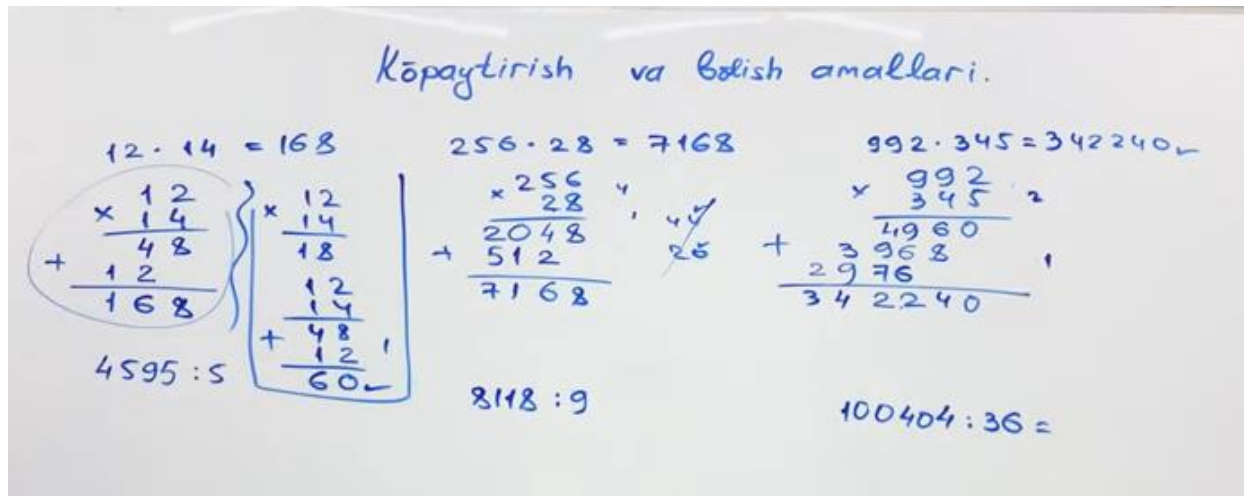 Kōpaytirish va bōlish amallari.
12 · 14 = 168
× 12
14
48
+ 12
168
× 12
14
18
12
14
48
+ 12 1
60
4595 : 5
256 · 28 = 7168
× 256 4
28 1
2048
+ 512
7168
26
8118 : 9
992 · 345 = 342240
× 992
345 2
4960
+ 3968 1
2976
342240
100404 : 36 =